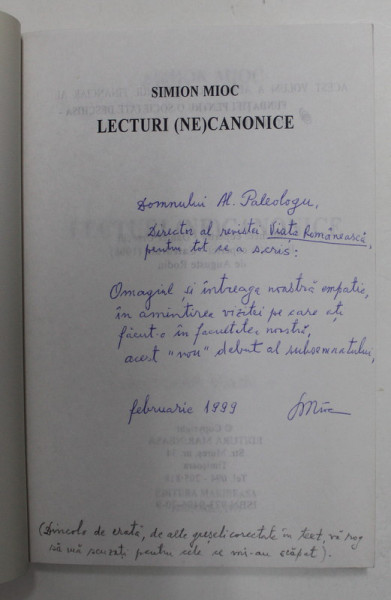 SIMION MIOC
LECTURI (NE)CANONICE
Domnului Al. Paleologu,
Director al revistei Viața Românească,
pentru tot ce a scris:
Omagiul și întreaga noastră empatie,
în amintirea vizitei pe care ați
făcut-o în facultatea noastră,
acest "nou" debut al subsemnatului,
februarie 1999 SMioc
(Dincolo de erată, de alte greșeli corectate în text, vă rog
să mă scuzați pentru cele ce mi-au scăpat).